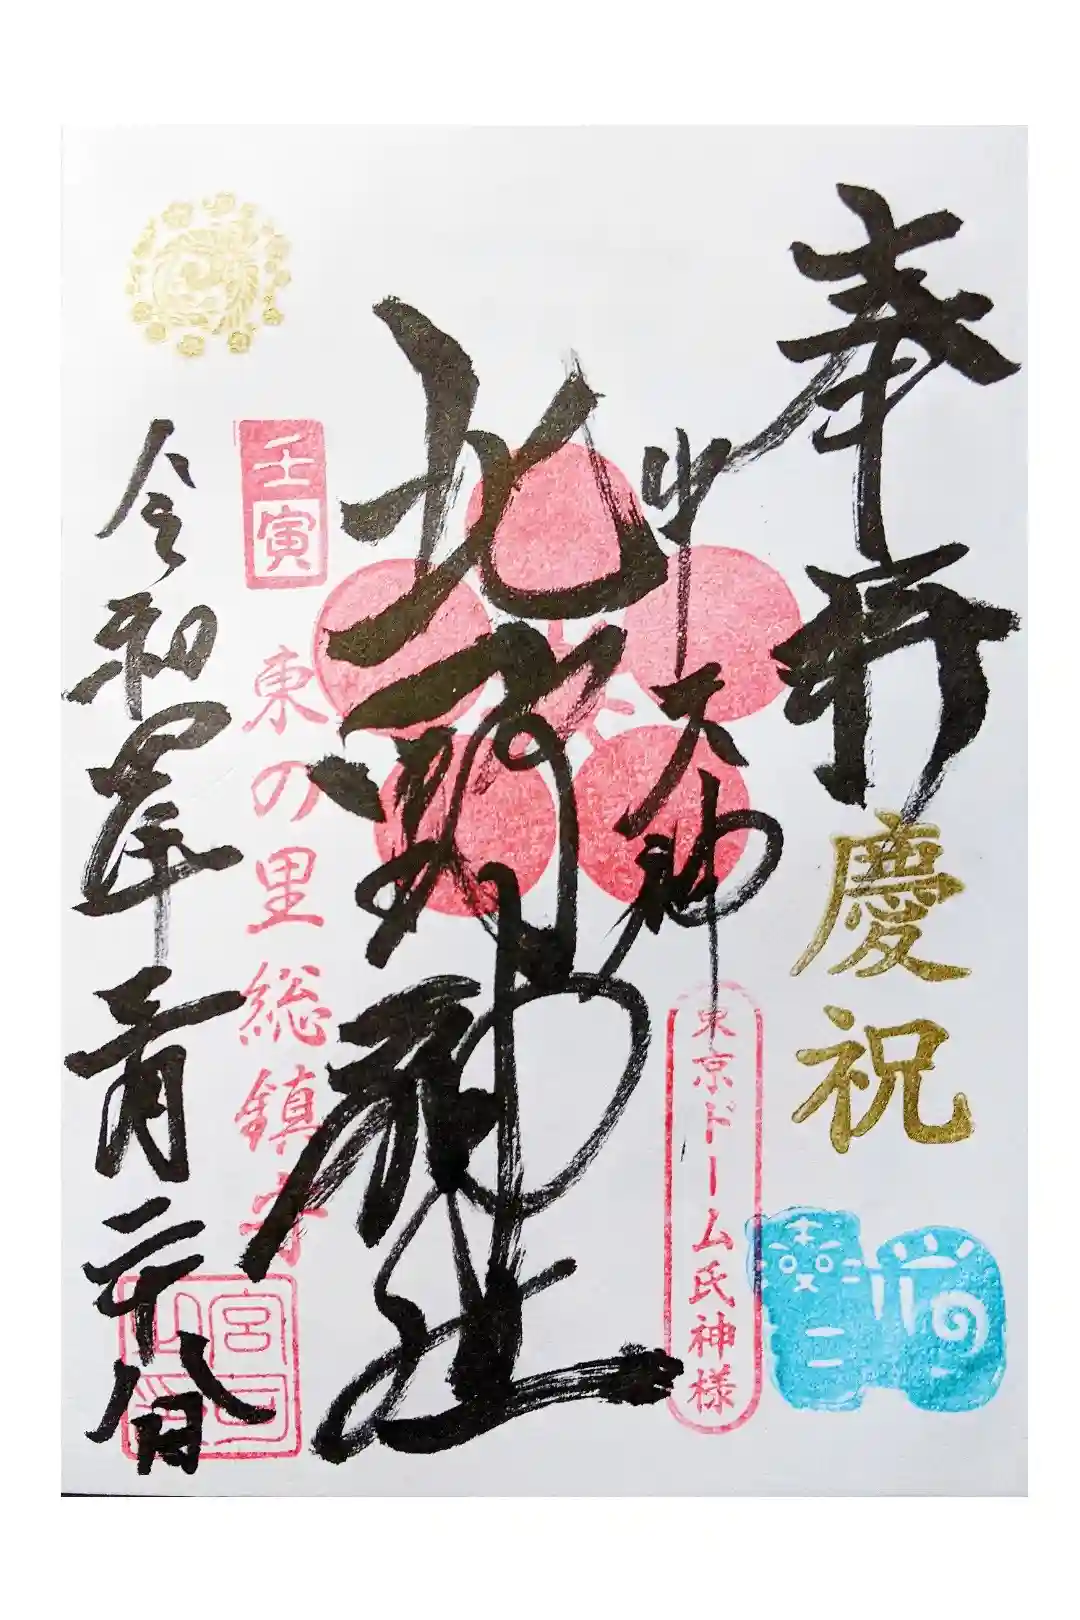 奉拝
慶祝
牛天神
東京ドーム氏神様
北野神社
壬寅
東の里総鎮守
令和四年二月二十八日